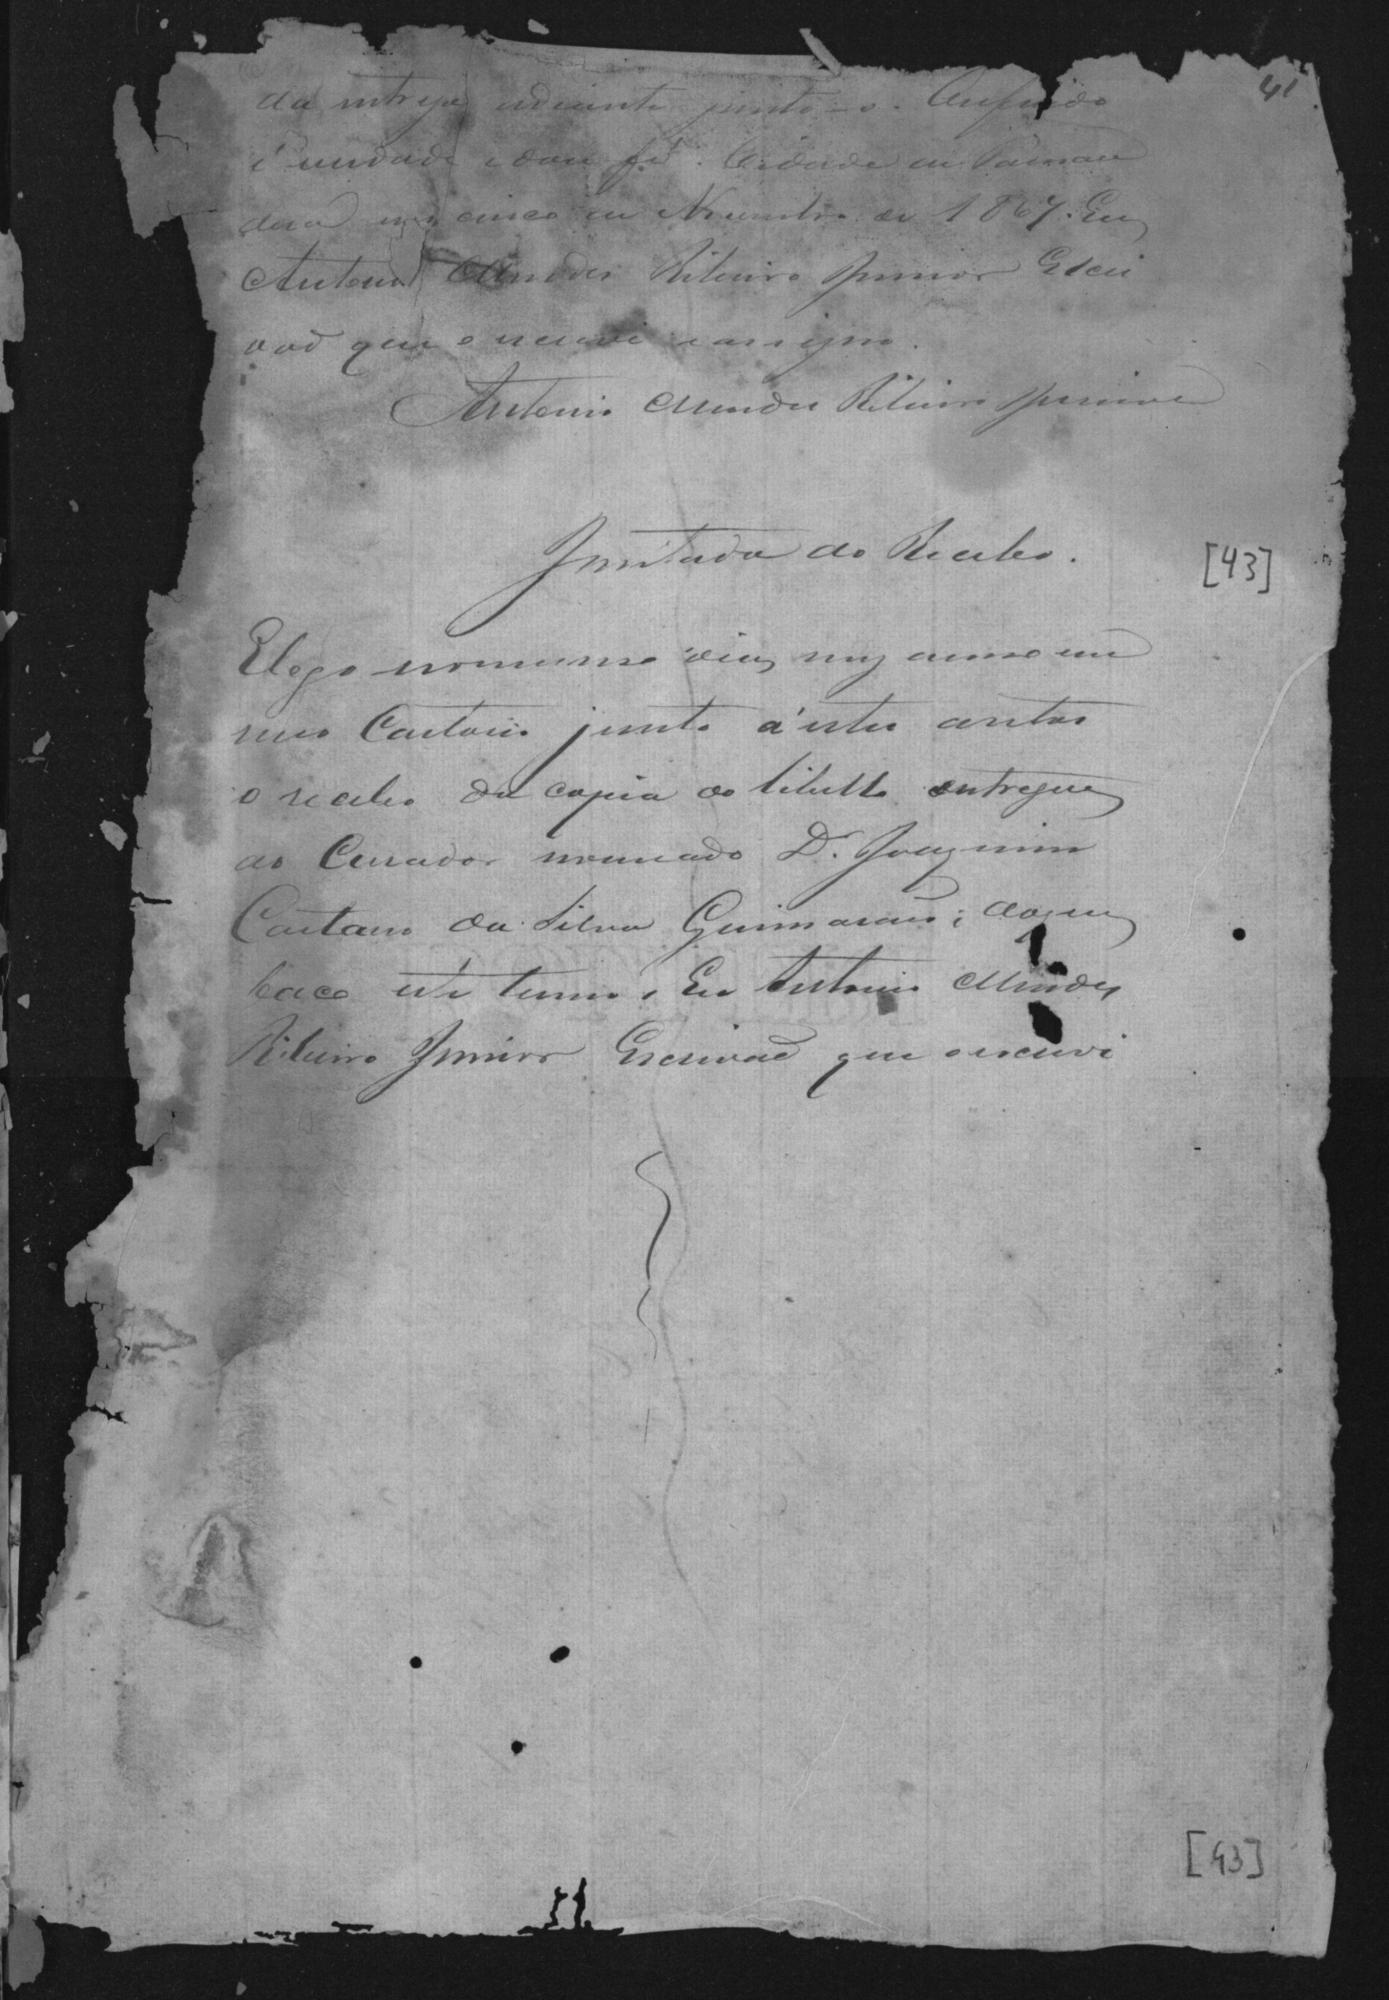 41
da entrega adiante junto-o. O referido
é verdade e dou fé. Cidade de Paranan
deva vinte cinco de Novembro de 1867. Eu
Antonio Mendes Ribeiro Junior Escri
vaõ que o escrevi e assigno.
Antonio Mendes Ribeiro Junior
Juntada do Recebo.
[43]
E logo nomesmo dia, mez annoem
meo Cartorio junto á estes autos
o recebo da copia do libello entregue
ao Curador nomeado D.r Joaquim
Caetano da Silva Guimarães; doque
faco este termo, Eu Antonio Mendes
Ribeiro Junior Escrivaõ que o escrevi
[43]